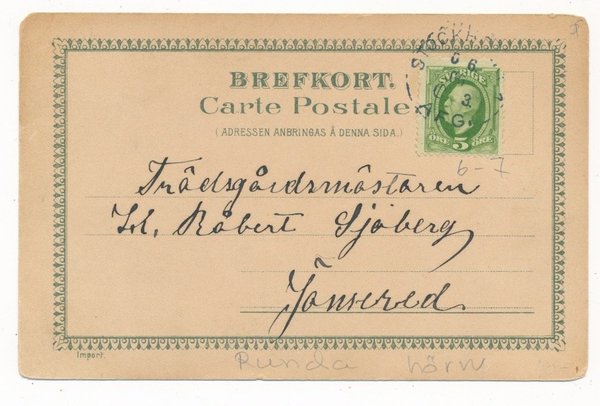 BREFKORT.
Carte Postale
(ADRESSEN ANBRINGAS Å DENNA SIDA.)
STOCKH
SVERIGE
ÖRE 5 ÖRE
6-7
Trädsgårdsmästaren
Robert Sjöberg
Jonsered.
Import.
Runda hörn